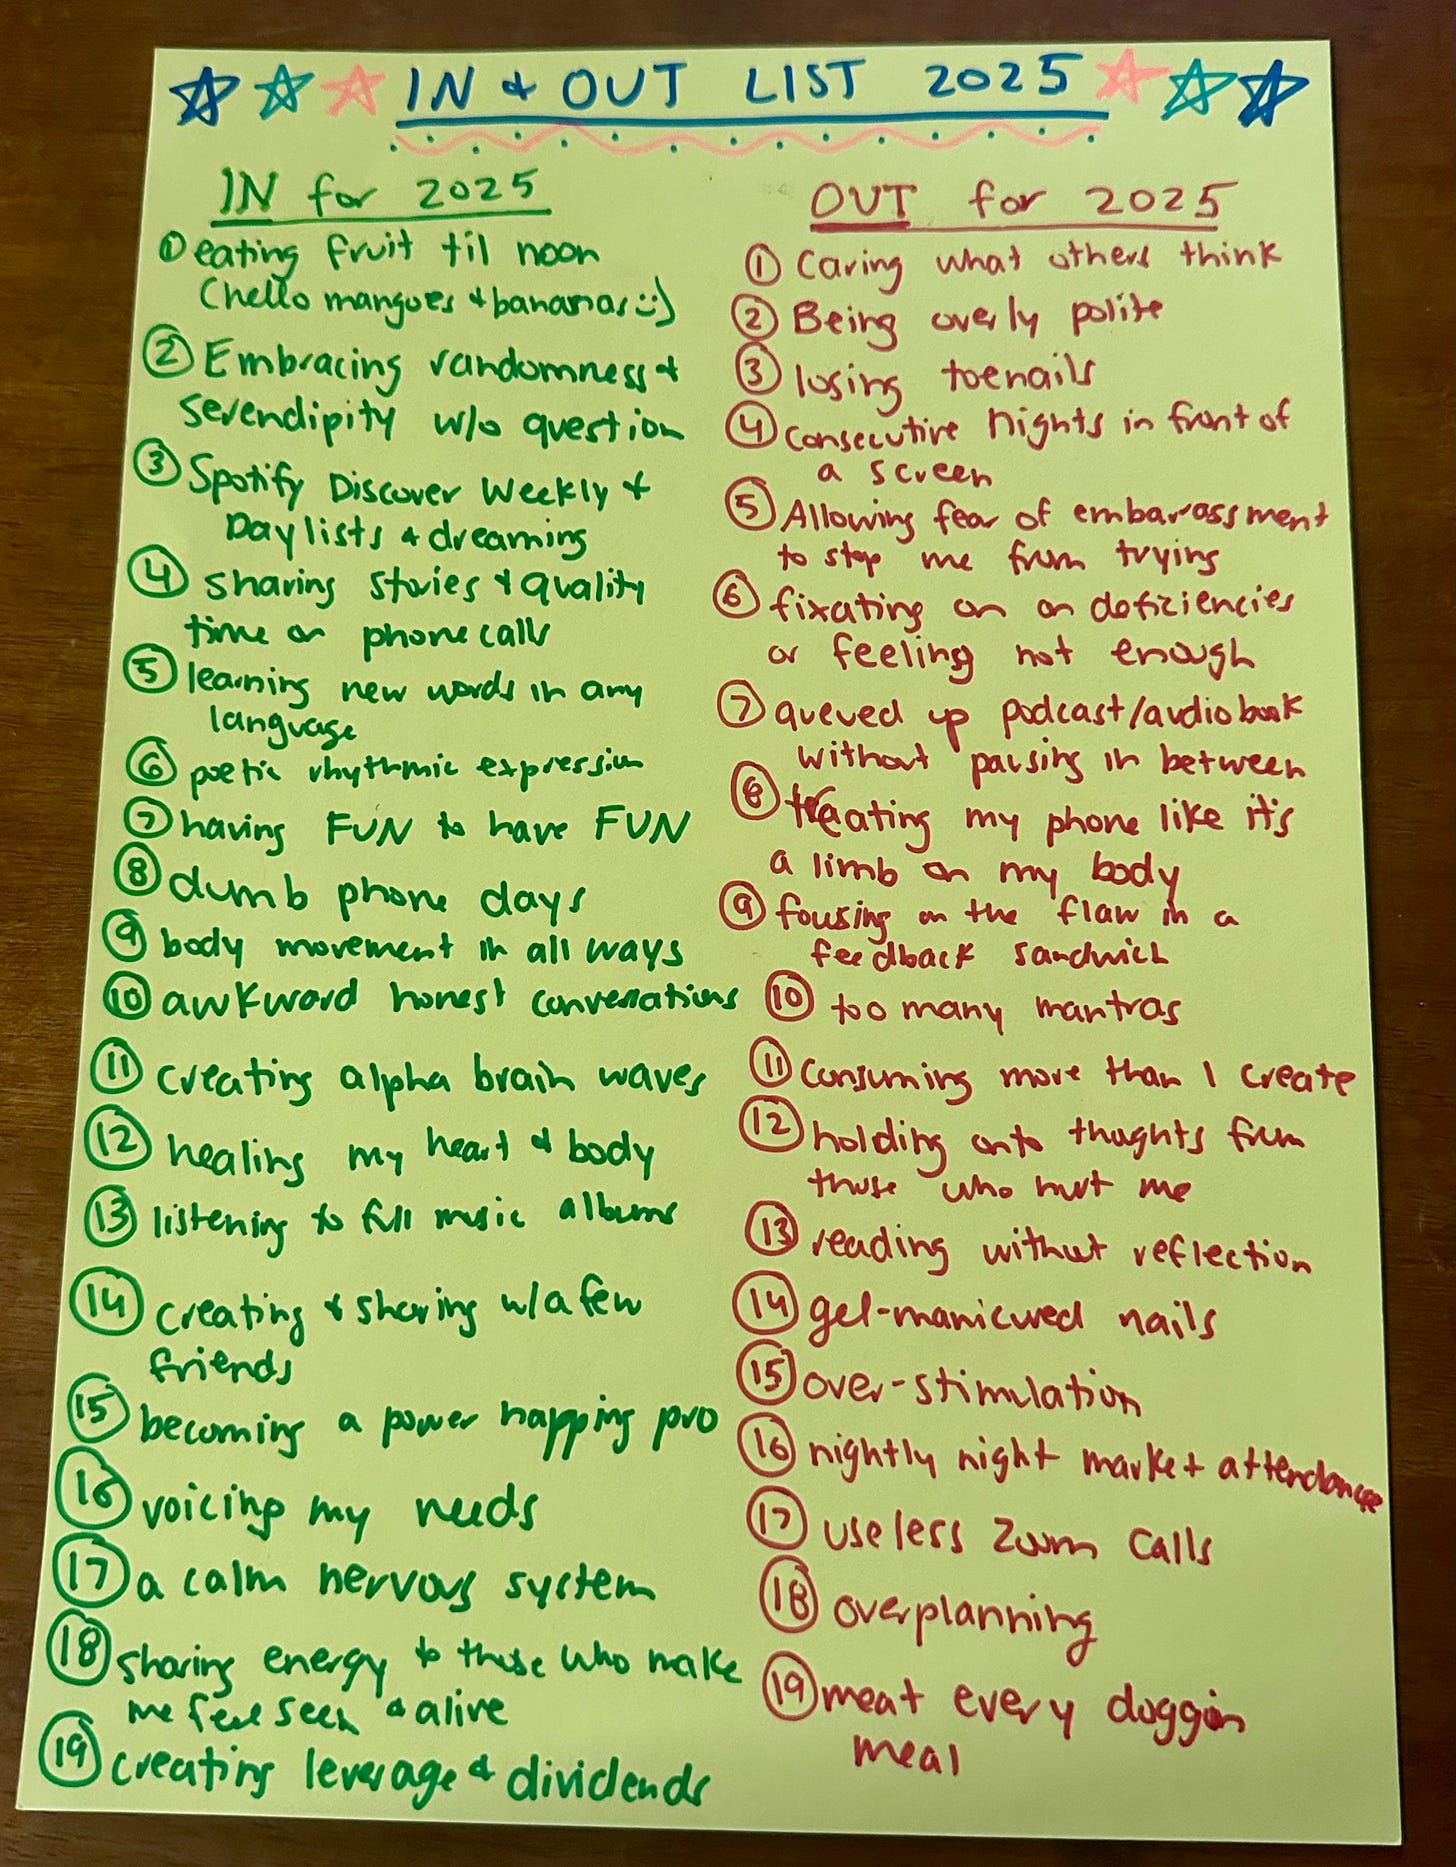 IN & OUT LIST 2025
IN for 2025
① eating fruit til noon
(hello mangoes & bananas :))
② Embracing randomness &
serendipity w/o question
③ Spotify Discover Weekly &
Daylists & dreaming
④ sharing stories & quality
time on phone calls
⑤ learning new words in any
language
⑥ poetic rhythmic expression
⑦ having FUN to have FUN
⑧ dumb phone days
⑨ body movement in all ways
⑩ awkward honest conversations
⑪ creating alpha brain waves
⑫ healing my heart & body
⑬ listening to full music albums
⑭ creating & sharing w/a few
friends
⑮ becoming a power napping pro
⑯ voicing my needs
⑰ a calm nervous system
⑱ sharing energy to those who make
me feel seen & alive
⑲ creating leverage & dividends
OUT for 2025
① Caring what others think
② Being overly polite
③ losing toenails
④ consecutive nights in front of
a screen
⑤ Allowing fear of embarassment
to stop me from trying
⑥ fixating on on deficiencies
or feeling not enough
⑦ queued up podcast/audiobook
without pausing in between
⑧ treating my phone like it's
a limb on my body
⑨ focusing on the flaw in a
feedback sandwich
⑩ too many mantras
⑪ consuming more than I create
⑫ holding onto thoghts from
those who hurt me
⑬ reading without reflection
⑭ gel-manicured nails
⑮ over-stimulation
⑯ nightly night market attendance
⑰ useless Zoom calls
⑱ overplanning
⑲ meat every doggon
meal